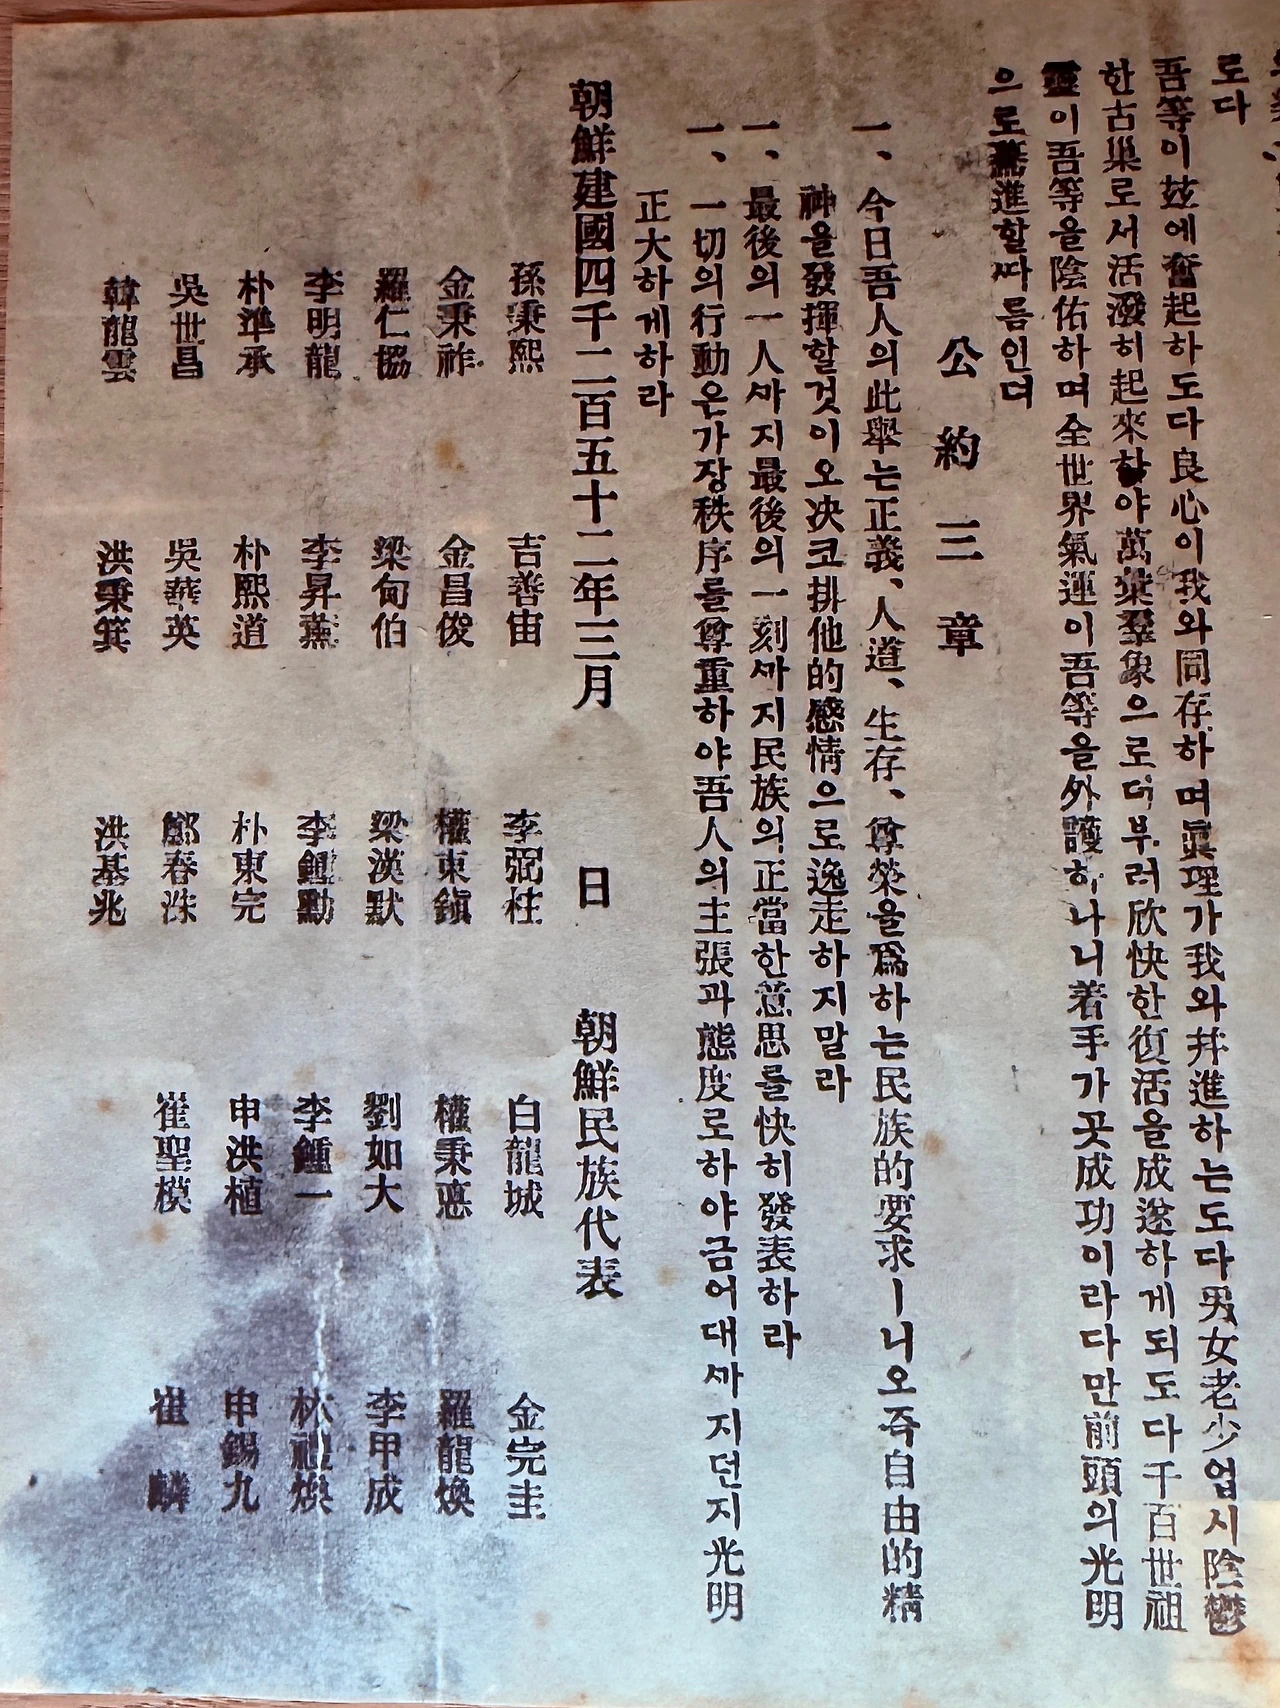 로다
吾等이玆에奮起하도다良心이我와同存하며眞理가我와幷進하는도다男女老少업시陰鬱
한古巢로서活潑히起來하야萬彙羣象으로더부러欣快한復活을成遂하게되도다千百世祖
靈이吾等을陰佑하며全世界氣運이吾等을外護하나니着手가곳成功이라다만前頭의光明
으로驀進할따름인뎌
公約三章
一、今日吾人의此擧는正義、人道、生存、尊榮을爲하는民族的要求ㅣ니오즉自由的精
神을發揮할것이오決코排他的感情으로逸走하지말라
一、最後의一人ᄭᅡ지最後의一刻ᄭᅡ지民族의正當한意思를快히發表하라
一、一切의行動은가장秩序를尊重하야吾人의主張과態度로하야금어대ᄭᅡ지던지光明
正大하게하라
朝鮮建國四千二百五十二年三月 日 朝鮮民族代表
孫秉熙 吉善宙 李弼柱 白龍城 金完圭
金秉祚 金昌俊 權東鎭 權秉悳 羅龍煥
羅仁協 梁甸伯 梁漢默 劉如大 李甲成
李明龍 李昇薰 李鍾勳 李鍾一 林禮煥
朴準承 朴熙道 朴東完 申洪植 申錫九
吳世昌 吳華英 鄭春洙 崔聖模 崔麟
韓龍雲 洪秉箕 洪基兆